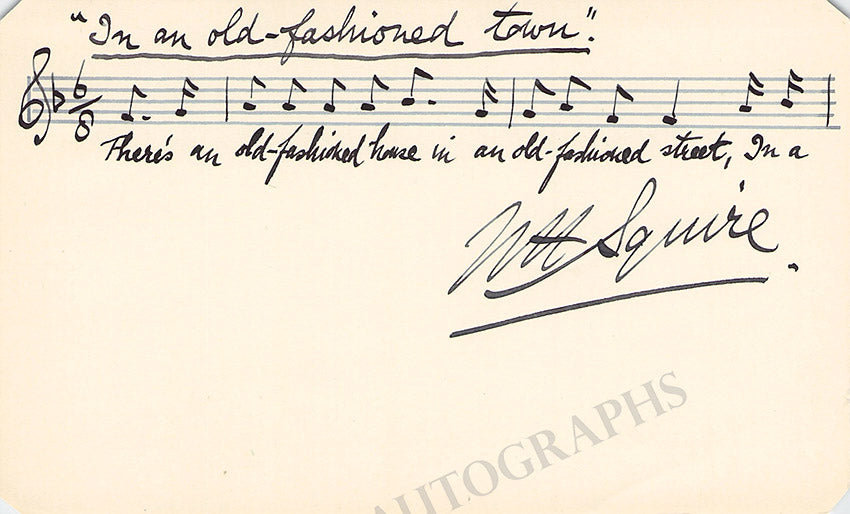 "In an old-fashioned town".
6
8
There's an old-fashioned house in an old-fashioned street, In a
WH Squire.
AUTOGRAPHS